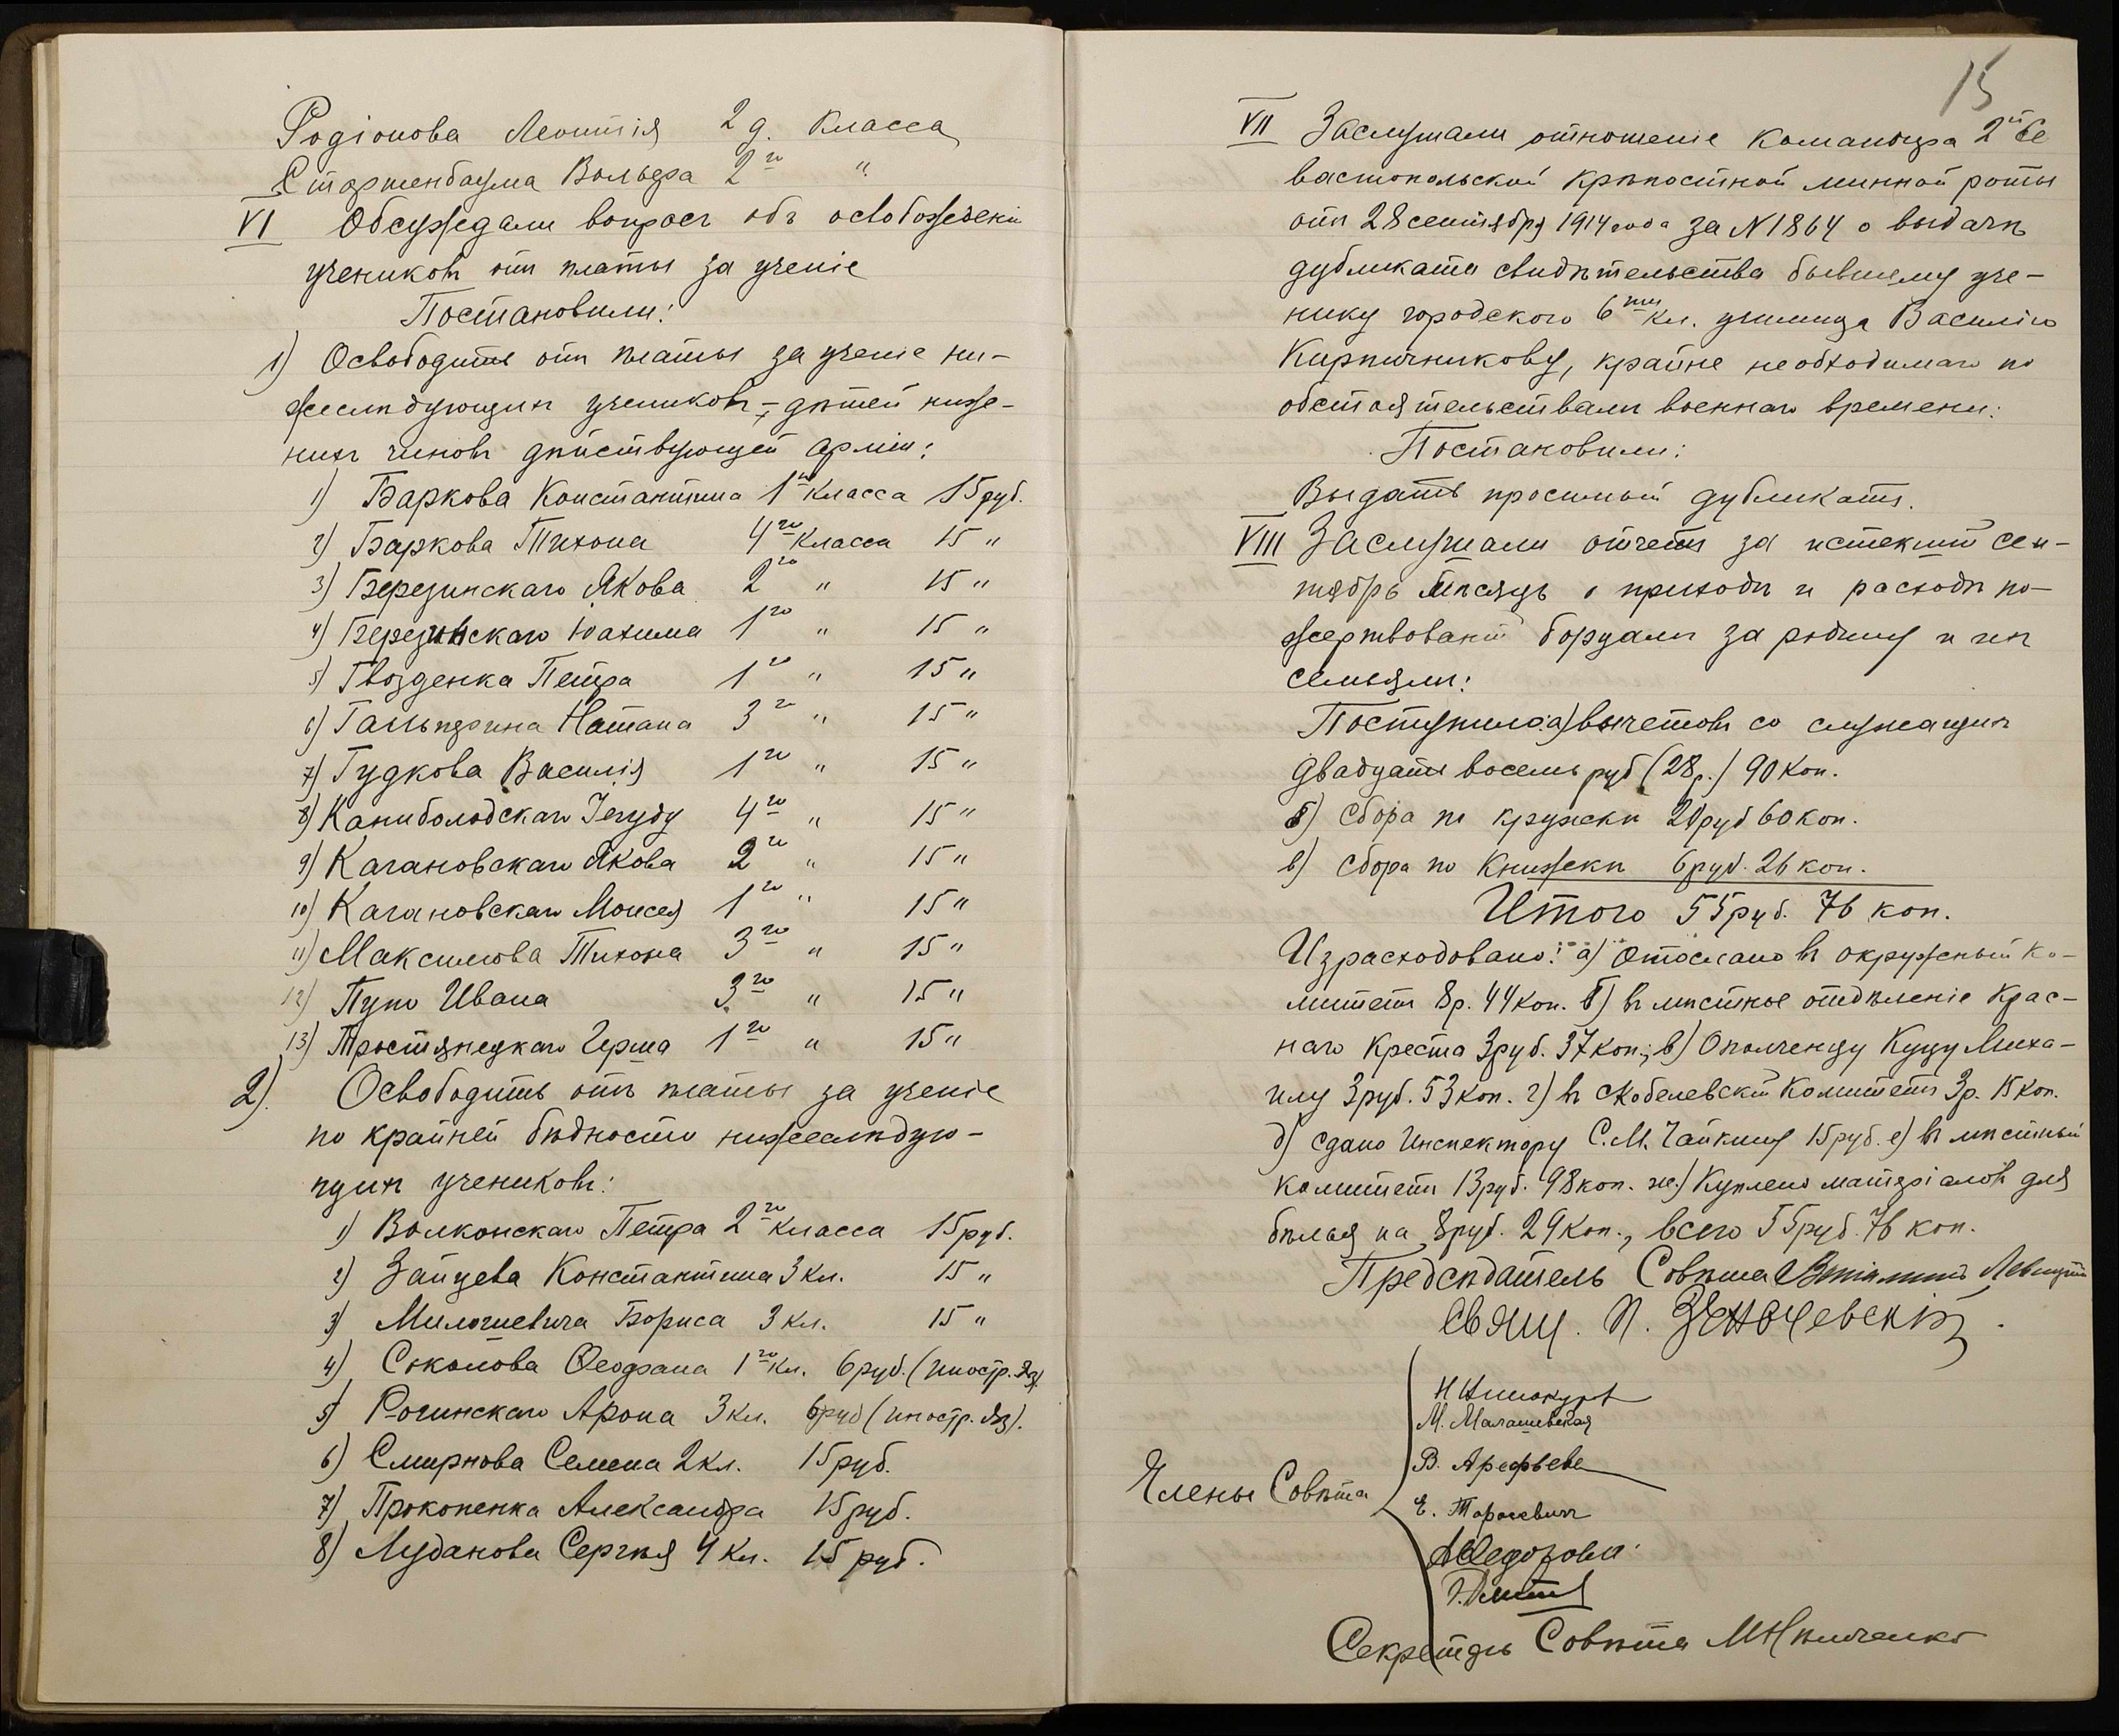 Родіонова Леонтія 2 д. класса
Штаркенбаума Вольфа 2го "
VI Обсуждали вопросъ объ освобожденіи
учениковъ отъ платы за ученіе
Постановили:
1) Освободить отъ платы за ученіе ни-
жеслѣдующихъ учениковъ – дѣтей ниж-
нихъ чиновъ дѣйствующей арміи:
1) Баркова Константина 1го класса 15 руб.
2) Баркова Тихона 4го класса 15 "
3) Березинскаго Якова 2го " 15 "
4) Березинскаго Іоахима 1го " 15 "
5) Гвозденка Петра 1го " 15 "
6) Гальперина Натана 3го " 15 "
7) Гудкова Василія 1го " 15 "
8) Каниболодскаго Іегуду 4го " 15 "
9) Кагановскаго Якова 2го " 15 "
10) Кагановскаго Моисея 1го " 15 "
11) Максимова Тихона 3го " 15 "
12) Пупо Ивана 3го " 15 "
13) Тростянецкаго Герша 1го " 15 "
2). Освободить отъ платы за ученіе
по крайней бѣдности нижеслѣдую-
щихъ учениковъ:
1) Волконскаго Петра 2го класса 15 руб.
2) Зайцева Константина 3 кл. 15 "
3) Милогиевича Бориса 3 кл. 15 "
4) Соколова Ѳеофана 1го кл. 6 руб. (иностр. яз).
5) Рогинскаго Арона 3 кл. 6 руб (иностр. яз).
6) Смирнова Семена 2 кл. 15 руб.
7) Прокопенка Александра 15 руб.
8) Луданова Сергѣя 4 кл. 15 руб.
15
VII Заслушали отношеніе Командира 2й Се
вастопольской крѣпостной минной роты
отъ 28 сентября 1914 года за N 1864 о выдачѣ
дубликата свидѣтельства бывшему уче-
нику городского 6ти кл. училища Василію
Кирпичникову, крайне необходимаго по
обстоятельствамъ военнаго времени:
Постановили:
Выдать просимый дубликатъ.
VIII Заслушали отчетъ за истекшій сен-
тябрь мѣсяцъ о приходѣ и расходѣ по-
жертвованій борцамъ за родину и ихъ
семьямъ:
Поступило: а) вычетовъ со служащихъ
двадцать восемь руб (28 р.) 90 коп.
б) сбора по кружкѣ 20 руб 60 коп.
в) сбора по книжкѣ 6 руб. 26 коп.
Итого 55 руб. 76 коп.
Израсходовано: а) Отослано въ окружный ко-
митетъ 8 р. 44 коп. б) въ мѣстное отдѣленіе Крас-
наго Креста 3 руб. 37 коп.; в) Ополченцу Куцу Миха-
илу 3 руб. 53 коп. г) въ Скобелевскій Комитетъ 3 р. 15 коп.
д) сдано Инспектору С. М. Чайкину 15 руб. е) въ мѣстный
комитетъ 13 руб. 98 коп. ж) Куплено матеріаловъ для
бѣлья на 8 руб. 29 коп., всего 55 руб. 76 коп.
Предсѣдатель Совѣта Левицкій
Свящ. П.
М. Малашевская
В. Арефьева
Члены Совѣта
Е. Тарасевичъ
А Ѳедорова
Секретарь Совѣта